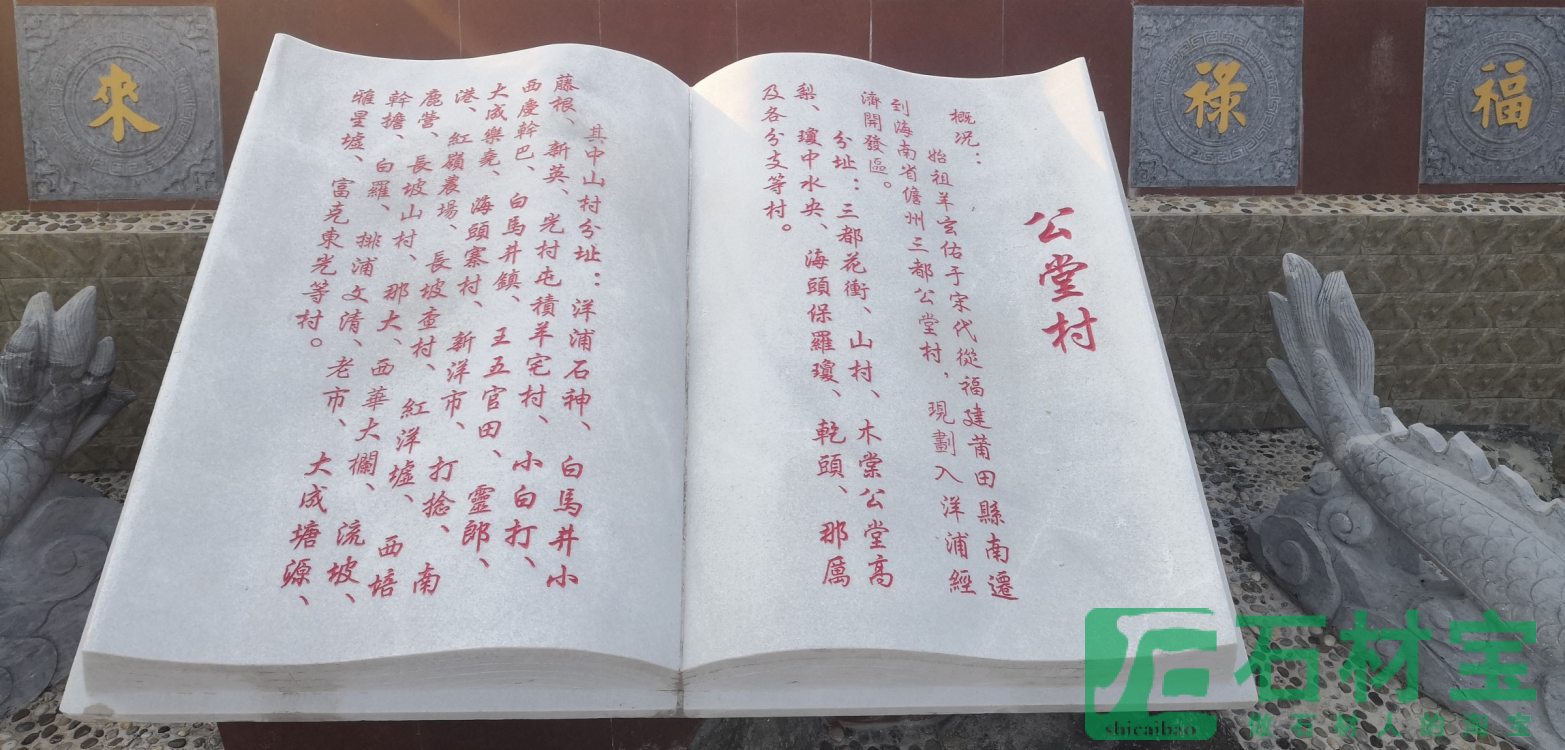 福
祿
來
公堂村
概況：
始祖羊玄佑于宋代從福建莆田縣南遷
到海南省儋州三都公堂村，現劃入洋浦經
濟開發區。
分址：三都花衝、山村、木棠公堂高
梨、瓊中水央、海頭保羅瓊、乾頭、那厲
及各分支等村。
其中山村分址：洋浦石神、白馬井小
藤根、新英、光村屯積羊宅村、小白打、
西慶幹巴、白馬井鎮、王五官田、靈郎、
大成樂堯、海頭寨村、新洋市、打捻、南
港、紅嶺農場、長坡查村、紅洋墟、西培
鹿營、長坡山村、那大、西華大欄、流坡、
幹擔、白羅、排浦文清、老市、大成塘源、
雅星墟、富克東光等村。
石材宝
shicaibao